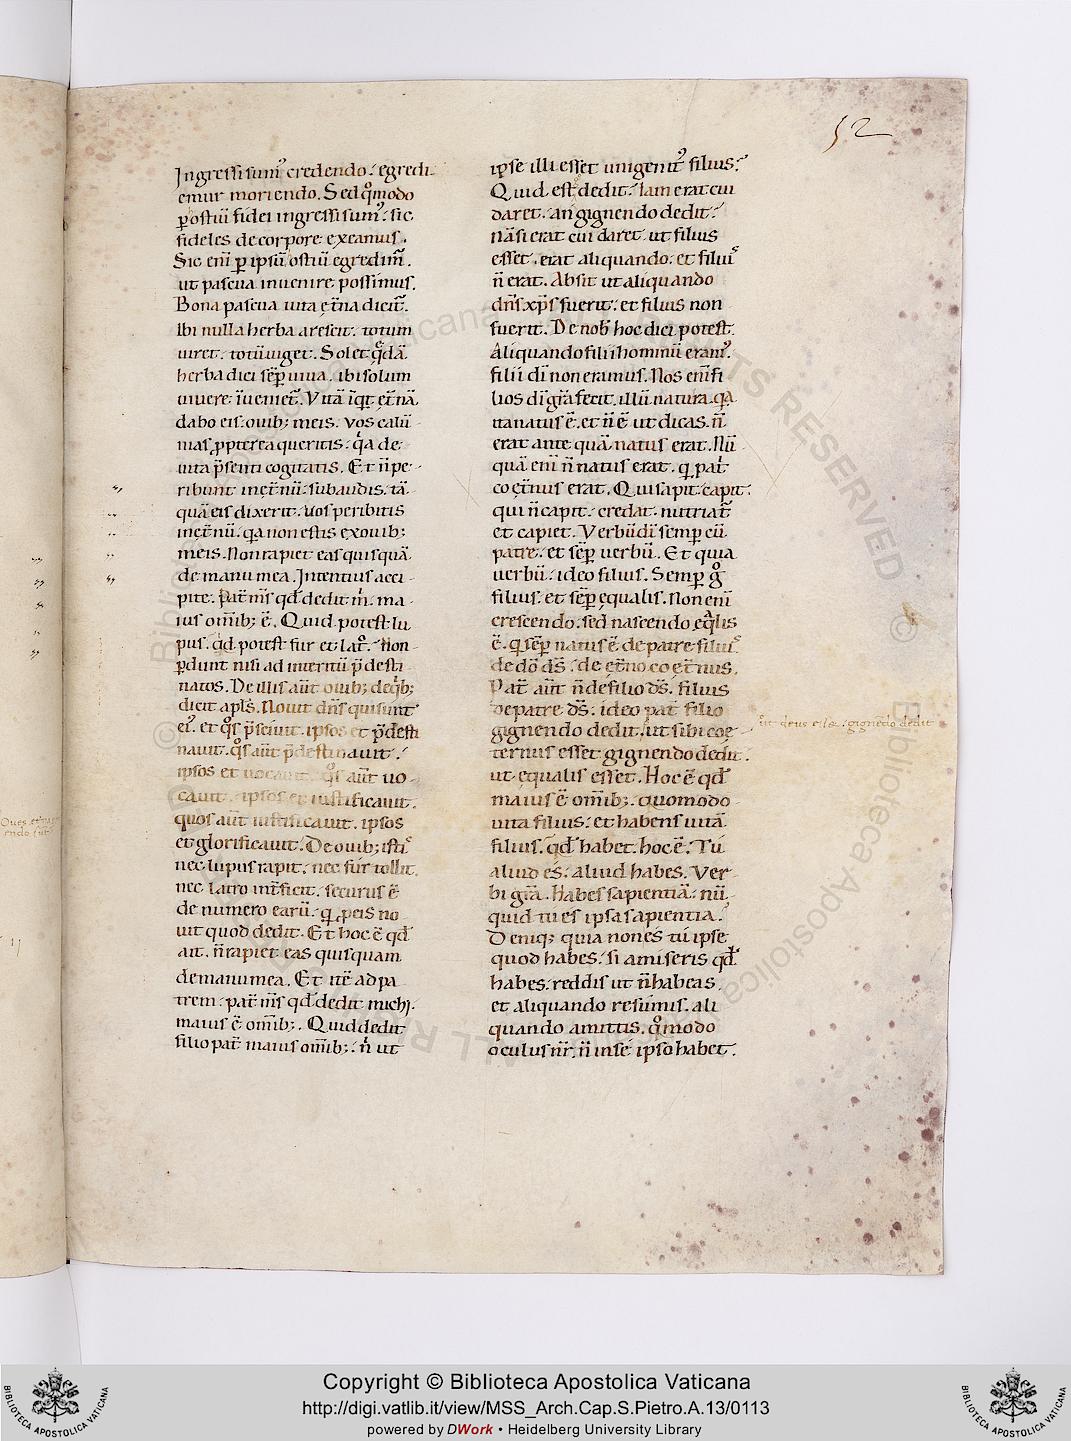 52
Ingressi sumꝰ credendo. egredi
emur moriendo. Sed qͦmodo
ꝑ ostiū fidei ingressi sumꝰ. sic
fideles de corpore exeamus.
Sic eni᷃ ꝑ ipsū ostiū egredim᷑.
ut pascua invenire possimus.
Bona pascua uita et̄na dicit᷑.
Ibi nulla herba arescit. totum
uiret. totū uiget. Solet qͤdā
herba dici sēꝑ uiua. ibi solum
uiuere inueniet᷑. Vitā inqͥt. et̄nā
dabo eis. ouibꝫ meis. Vos calū
nias ꝓpterea queritis. qͥa de
uita p̄senti cogitatis. Et n̄ pe
ribunt inet̄nū. subaudis. tā
quā eis dixerit. uos peribitis
inet̄nū. qͣa non estis ex ouibꝫ
meis. Non rapiet eas quisquā
de manu mea. Intentius acci
pite. Pat̄ m̄s qd̄ dedit m̄. ma
ius om̄ibꝫ ē. Quid potest lu
pus. qͥd potest fur et latͦ. Non
ꝑdunt nisi ad interitū p̄desti
natos. De illis aūt ouibꝫ de qͥbꝫ
dicit apl̄s. Nouit dn̄s qui sunt
eiꝰ. et qͦs p̄sciuit. ipsos et p̄desti
nauit. qͦs aūt p̄destinauit.
ipsos et uocauit. qͦs aūt uo
cauit. ipsos et iustificauit.
quos aūt iustificauit. ipsos
et glorificauit. De ouibꝫ istiͥs
nec lupus rapit. nec fur tollit.
nec latro int̄ficit. securus ē
de numero earū. qͥ ꝓ eis no
uit quod dedit. Et hoc ē qd̄
ait. n̄ rapiet eas quisquam
de manu mea. Et itē ad pa
trem. pat̄ m̄s qd̄ dedit michi.
maius ē om̄ibꝫ. Quid dedit
filio pat̄ maius om̄ibꝫ. n̄ ut
ipse illi esset unigenitꝰ filius.
Quid est dedit. Iam erat cui
daret. an gignendo dedit.
nā si erat cui daret ut filius
esset. erat aliquando. et filiuͥs
n̄ erat. Absit ut aliquando
dn̄s xp̄s fuerit. et filius non
fuerit. De nob̄ hoc dici potest.
Aliquando filii hominū eramꝰ.
filii dī non eramus. Nos enī fi
lios dī gr̄a fecit. illū natura. qͥa
ita natus ē. et n̄ ē ut dicas. n̄
erat ante quā natus erat. Nū
quā eni᷃ n̄ natus erat. qͥ patͥ
coet̄nus erat. Qui sapit capit.
qui n̄ capit. credat. nutriat᷑
et capiet. Verbū dī semꝑ cū
patre. et sēꝑ uerbū. Et quia
uerbū. ideo filius. Semꝑ gͦ
filius. et sēꝑ equalis. Non enī
crescendo. sed nascendo eqͣlis
ē. qͥ sēꝑ natus ē de patre filiuͥs
de dō ds̄. de et̄no coet̄nus.
Pat̄ aūt n̄ de filio ds̄. filius
de patre ds̄. ideo pat̄ filio
gignendo dedit. ut sibi coe
ternus esset gignendo dedit.
ut equalis esset. Hoc ē qd̄
maius ē om̄ibꝫ. quomodo
uita filius. et habens uitā
filius. qd̄ habet. hoc ē. Tu
aliud es. aliud habes. Ver
bi gr̄a. habes sapientiā. nū
quid tu es ipsa sapientia.
Deniqꝫ quia non es tu ipse
quod habes. si amiseris qd̄
habes. reddis ut n̄ habeas.
et aliquando resumis. ali
quando amittis. qͦmodo
oculus nr̄. n̄ in se ipso habet.
ut deus esset. gignēdo dedit
Copyright © Biblioteca Apostolica Vaticana
http://digi.vatlib.it/view/MSS_Arch.Cap.S.Pietro.A.13/0113
powered by DWork • Heidelberg University Library
BIBLIOTECA APOSTOLICA VATICANA
BIBLIOTECA APOSTOLICA VATICANA